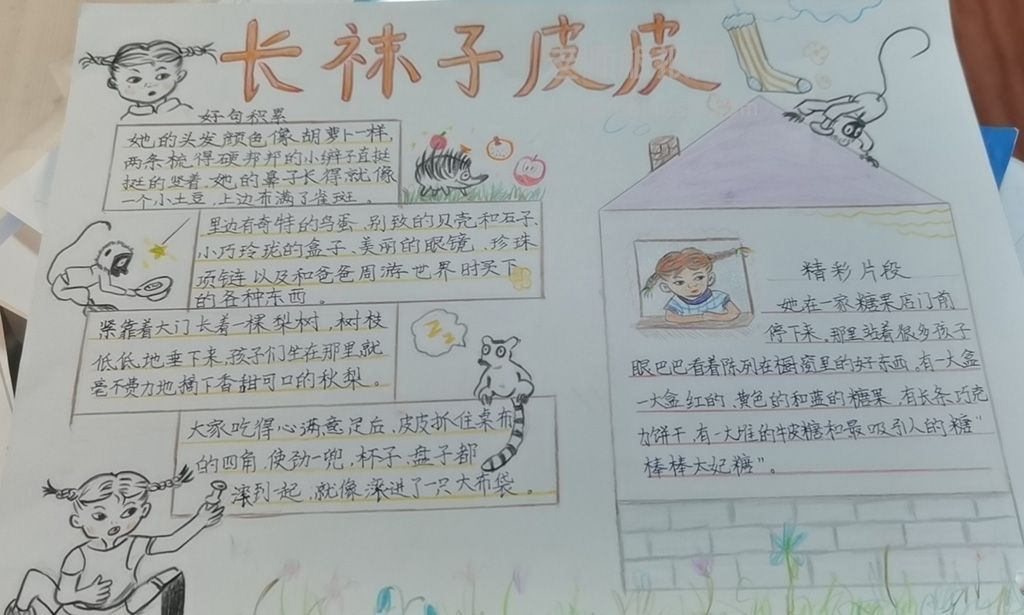 长袜子皮皮
好句积累
她的头发颜色像胡萝卜一样,
两条梳得硬邦邦的小辫子直挺
挺的竖着.她的鼻子长得就像
一个小土豆,上边布满了雀斑。
里边有奇特的鸟蛋、别致的贝壳和石子、
小巧玲珑的盒子、美丽的眼镜、珍珠
项链以及和爸爸周游世界时买下
的各种东西。
紧靠着大门长着一棵梨树,树枝
低低地垂下来,孩子们坐在那里就
毫不费力地摘下香甜可口的秋梨。
ZZ
大家吃得心满意足后,皮皮抓住桌布
的四角,使劲一兜,杯子、盘子都
滚到一起,就像滚进了一只大布袋。
精彩片段
她在一家糖果店门前
停下来,那里站着很多孩子
眼巴巴看着陈列在橱窗里的好东西.有一大盒
一大盒红的、黄色的和蓝的糖果,有长条巧克
力饼干,有一大堆的牛皮糖和最吸引人的糖“
棒棒大妃糖”。